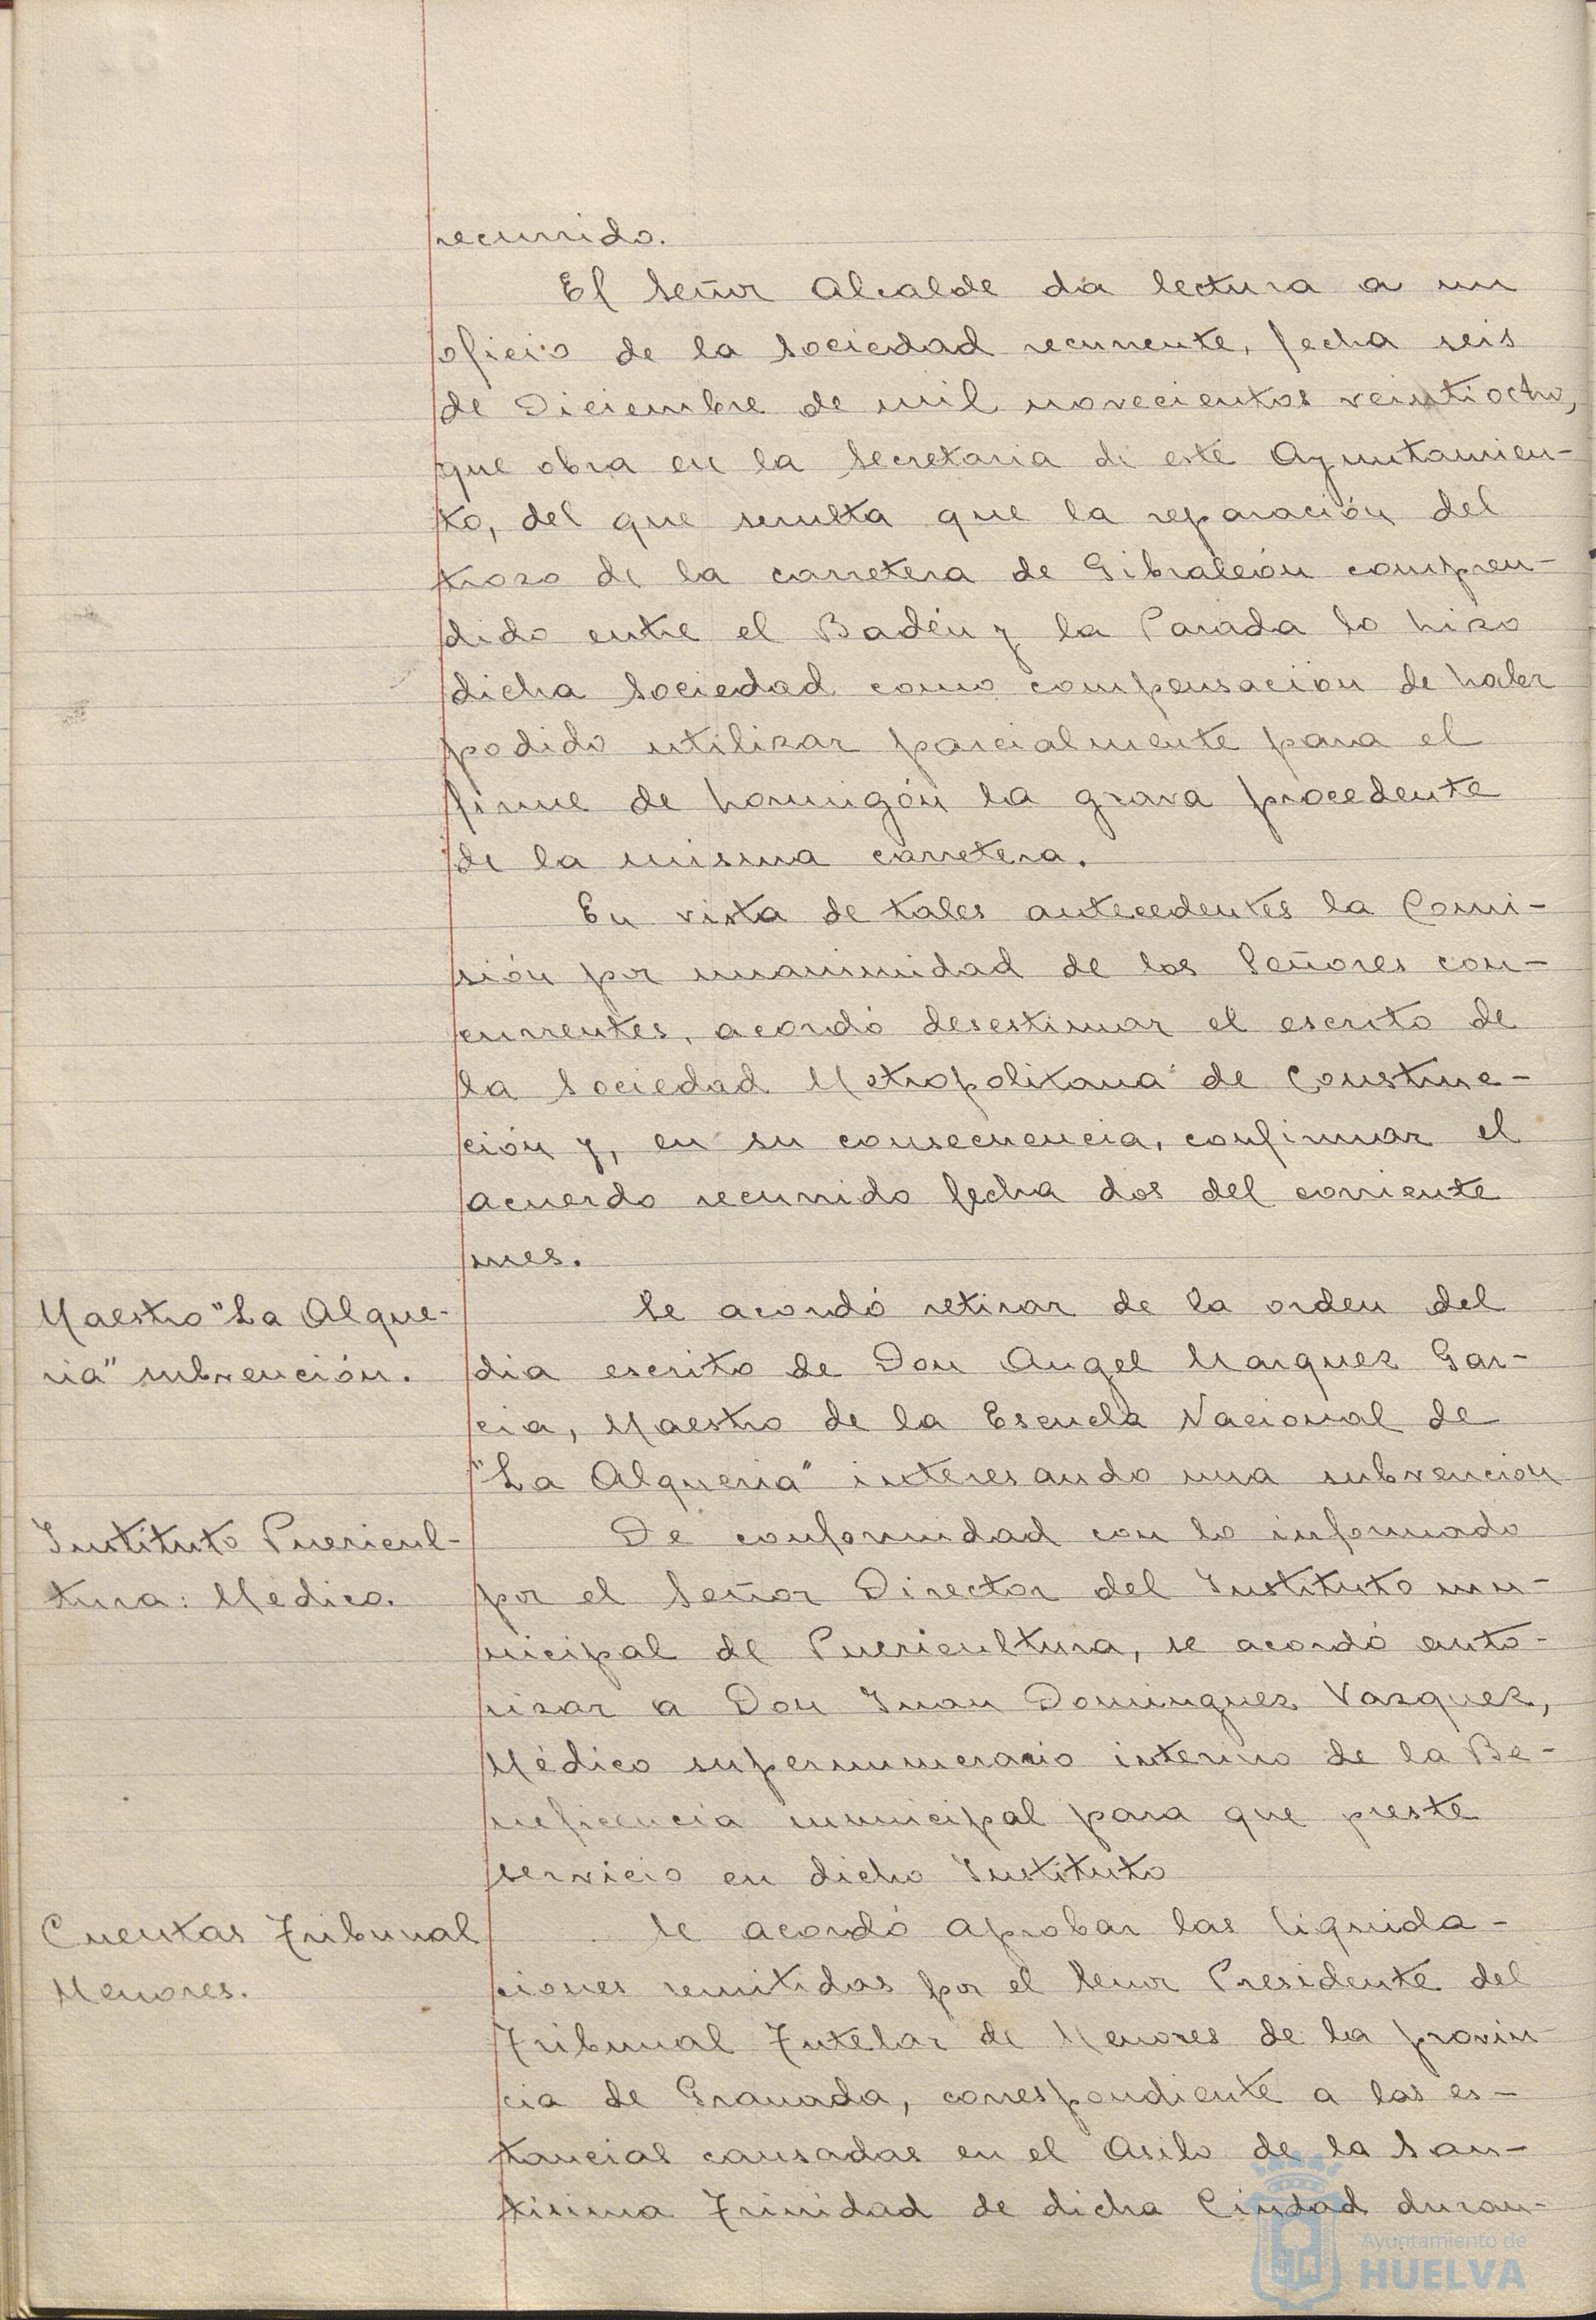 recurrido.
El Señor Alcalde da lectura a un
oficio de la Sociedad recurrente, fecha seis
de Diciembre de mil novecientos veintiocho,
que obra en la Secretaria de este Ayuntamien-
to, del que resulta que la reparación del
trozo de la carretera de Gibraleón compren-
dido entre el Badén y la Parada lo hizo
dicha Sociedad como compensación de haber
podido utilizar parcialmente para el
firme de hormigón la grava procedente
de la misma carretera.
En vista de tales antecedentes la Comi-
sión por unanimidad de los Señores con-
currentes, acordó desestimar el escrito de
la Sociedad Metropolitana de Construc-
ción y, en su consecuencia, confirmar el
acuerdo recurrido fecha dos del corriente
mes.
Maestro "La Alque-
ria" subvención.
Se acordó retirar de la orden del
dia escrito de Don Angel Marquez Gar-
cia, Maestro de la Escuela Nacional de
"La Alqueria" interesando una subvención
Instituto Puericul-
tura: Médico.
De conformidad con lo informado
por el Señor Director del Instituto mu-
nicipal de Puericultura, se acordó auto-
rizar a Don Juan Dominguez Vazquez,
Médico supernumerario interino de la Be-
neficencia municipal para que preste
servicio en dicho Instituto
Cuentas Tribunal
Menores.
Se acordó aprobar las liquida-
ciones remitidas por el Señor Presidente del
Tribunal Tutelar de Menores de la provin-
cia de Granada, correspondiente a las es-
tancias causadas en el Asilo de la San-
tisima Trinidad de dicha Ciudad duran-
Ayuntamiento de
HUELVA